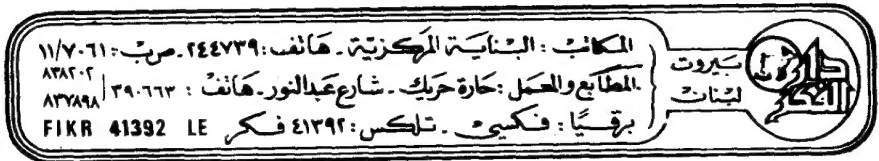 دار الفكر
بيروت
لبنان
المكاتب : البناية المركزية ـ هاتف : ٢٤٤٧٣٩ ـ ص ب : ١١/٧٠٦١
المطابع والمعمل : حارة حريك ـ شارع عبد النور ـ هاتف : ٣٩٠٦٦٣ / ٨٣٨٢٠٢ ٨٣٧٨٩٨
برقياً : فكسي ـ تلكس : ٤١٣٩٢ فكر FIKR 41392 LE